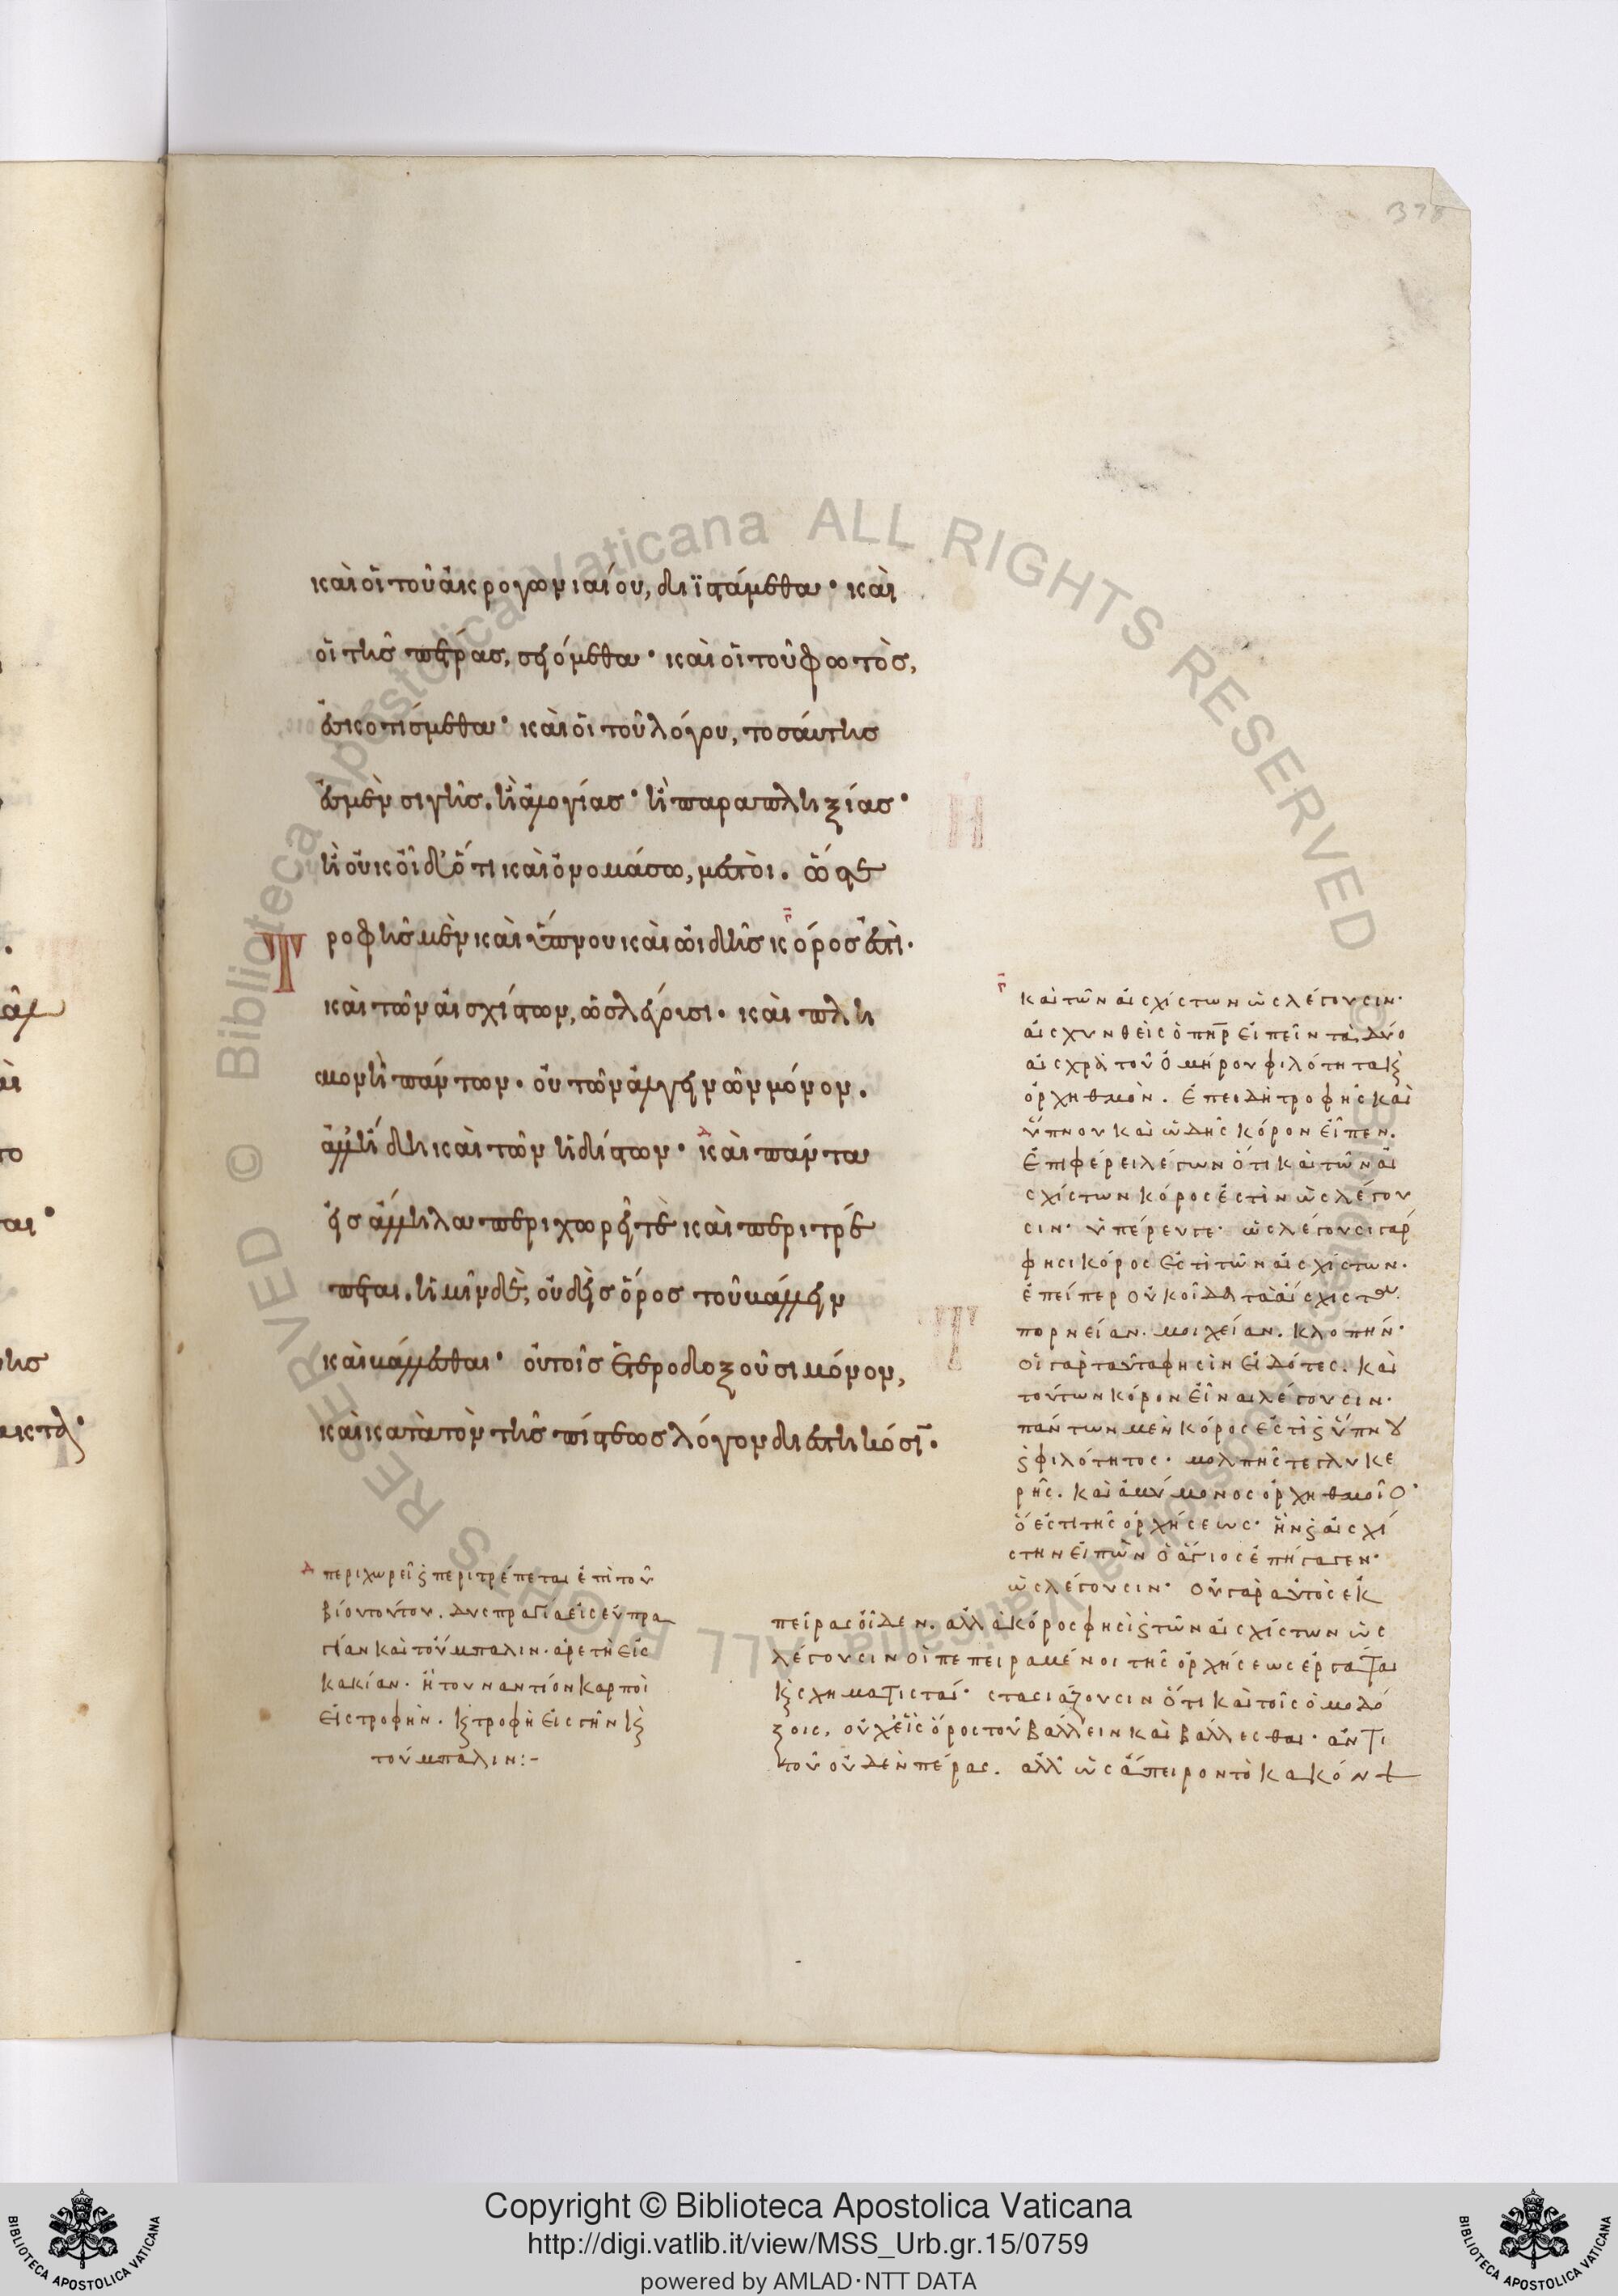 378
καὶ οἱ τοῦ ἀκρογωνιαίου, διϊστάμεθα· καὶ
οἱ τῆς πέτρας, σειόμεθα· καὶ οἱ τοῦ φωτὸς,
ἐσκοτίσμεθα· καὶ οἱ τοῦ λόγου, τοσαύτης
ἐσμὲν σιγῆς. ἢ ἀλογίας· ἢ παραπληξίας·
ἢ οὐκ οἶδ' ὅ τι καὶ ὀνομάσω, μεστοί. ὥστε
Τροφῆς μὲν καὶ ὕπνου καὶ ὠιδῆς κόρος ἐστὶ·
καὶ τῶν αἰσχίστων, ὡς λέγουσι. καὶ πλη
σμονὴ πάντων. οὐ τῶν ἀλγεινῶν μόνον.
ἀλλ' ἤδη καὶ τῶν ἡδίστων· καὶ πάντα
εἰς ἄλληλα περιχωρεῖ τὲ καὶ περιτρέ
πεται. ἡμῖν δὲ, οὐδεὶς ὅρος τοῦ βάλλειν
καὶ βάλλεσθαι· οὐ τοῖς ἑτεροδοξοῦσι μόνον,
καὶ κατὰ τὸν τῆς πίστεως λόγον διεστηκόσιν·
καὶ τῶν αἰσχίστων ὡς λέγουσιν·
αἰσχυνθεὶς ὁ πηρ εἰπεῖν τὰ δύο
αἰσχρὰ τοῦ ὁμήρου φιλότητα κ
ὀρχηθμὸν. ἐπειδὴ τροφῆς καὶ
ὕπνου καὶ ὠδῆς κόρον εἶπεν.
ἐπιφέρει λέγων ὅτι καὶ τῶν αἰ
σχίστων κόρος ἐστὶν ὡς λέγου
σιν· ὑπέρευγε· ὡς λέγουσι γάρ
φησι κόρος ἐστὶ τῶν αἰσχίστων.
ἐπείπερ οὐκ οἶδα τὰ αἴσχιστα
πορνείαν. μοιχείαν. κλοπήν·
οἱ γὰρ ταῦτα φησὶν εἰδότες. καὶ
τούτων κόρον εἶναι λέγουσιν.
πάντων μὲν κόρος ἐστὶ ϛ ὕπνου
ϛ φιλότητος· μολπῆς τε γλυκε
ρῆς. καὶ ἀμύμονος ὀρχηθμοῖο·
ὅ ἐστι τῆς ὀρχήσεως· ἣν ϛ αἰσχί
στην εἰπὼν ὁ ἅγιος ἐπήγαγεν·
ὡς λέγουσιν· οὐ γὰρ αὐτὸς ἐκ
πείρας οἶδεν. ἀλλὰ κόρος φησὶ ϛ τῶν αἰσχίστων ὡς
λέγουσιν οἱ πεπειραμένοι τῆς ὀρχήσεως ἐργάται
κ σχηματισταί· στασιάζουσιν ὅτι καὶ τοῖς ὁμοδό
ξοις. οὐχ εἷς ὅρος τοῦ βάλλειν καὶ βάλλεσθαι· ἀντὶ
τοῦ οὐδὲν πέρας. ἀλλ' ὡς ἄπειρον τὸ κακόν
περιχωρεῖ ϛ περιτρέπεται ἐπὶ τοῦ
βίου τούτου. δυσπραγία εἰς εὐπρα
γίαν καὶ τοὔμπαλιν. ἀρετὴ εἰς
κακίαν. ἢ τουναντίον καρποὶ
εἰς τροφὴν. κ τροφὴ εἰς γῆν κ
τοὔμπαλιν:-
Copyright © Biblioteca Apostolica Vaticana
http://digi.vatlib.it/view/MSS_Urb.gr.15/0759
powered by AMLAD·NTT DATA
BIBLIOTECA APOSTOLICA VATICANA
BIBLIOTECA APOSTOLICA VATICANA
© Biblioteca Apostolica Vaticana ALL RIGHTS RESERVED
© Biblioteca Apostolica Vaticana ALL RIGHTS RESERVED